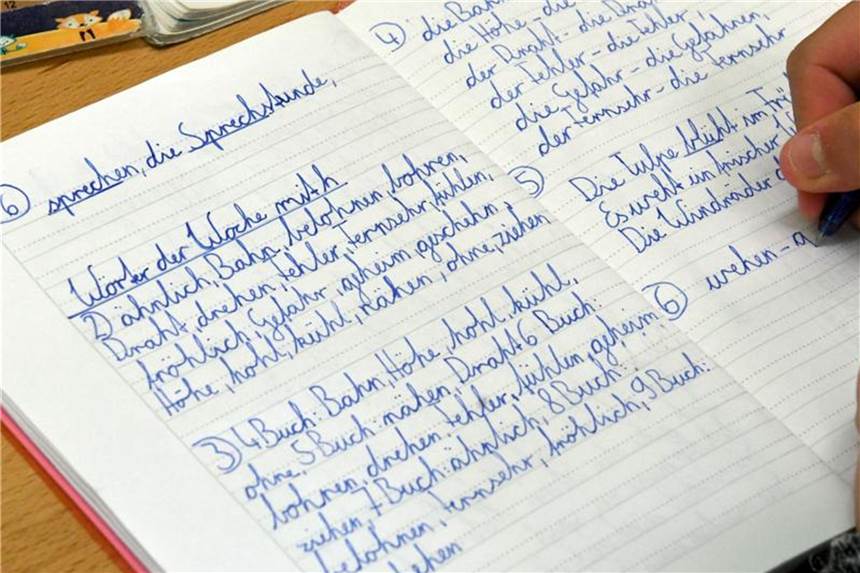 6 sprechen, die Sprechstunde,
Wörter der Woche mit h
2) ähnlich, Bahn, belohnen, bohren,
Draht, drehen, Fehler, Fernsehr, fühlen,
fröhlich, Gefahr, geheim, geschehn,
Höhe, hohl, kühl, nähen, ohne, ziehen
3) 4 Buch: Bahn, Höhe, hohl, kühl,
ohne, 5 Buch: nähen, Draht 6 Buch:
bohren, drehen, Fehler, fühlen, geheim,
ziehen, 7 Buch: ähnlich, 8 Buch:
belohnen, Fernsehr, fröhlich, 9 Buch:
4) die Bahn
die Höhe – die
der Draht – die Dräh
der Fehler – die Fehler
die Gefahr – die Gefahren,
der Fernsehr – die Fernsehr
5 Die Tulpe blüht im Frü
Es weht ein frischer
Die Windräder
6 wehen – a
12